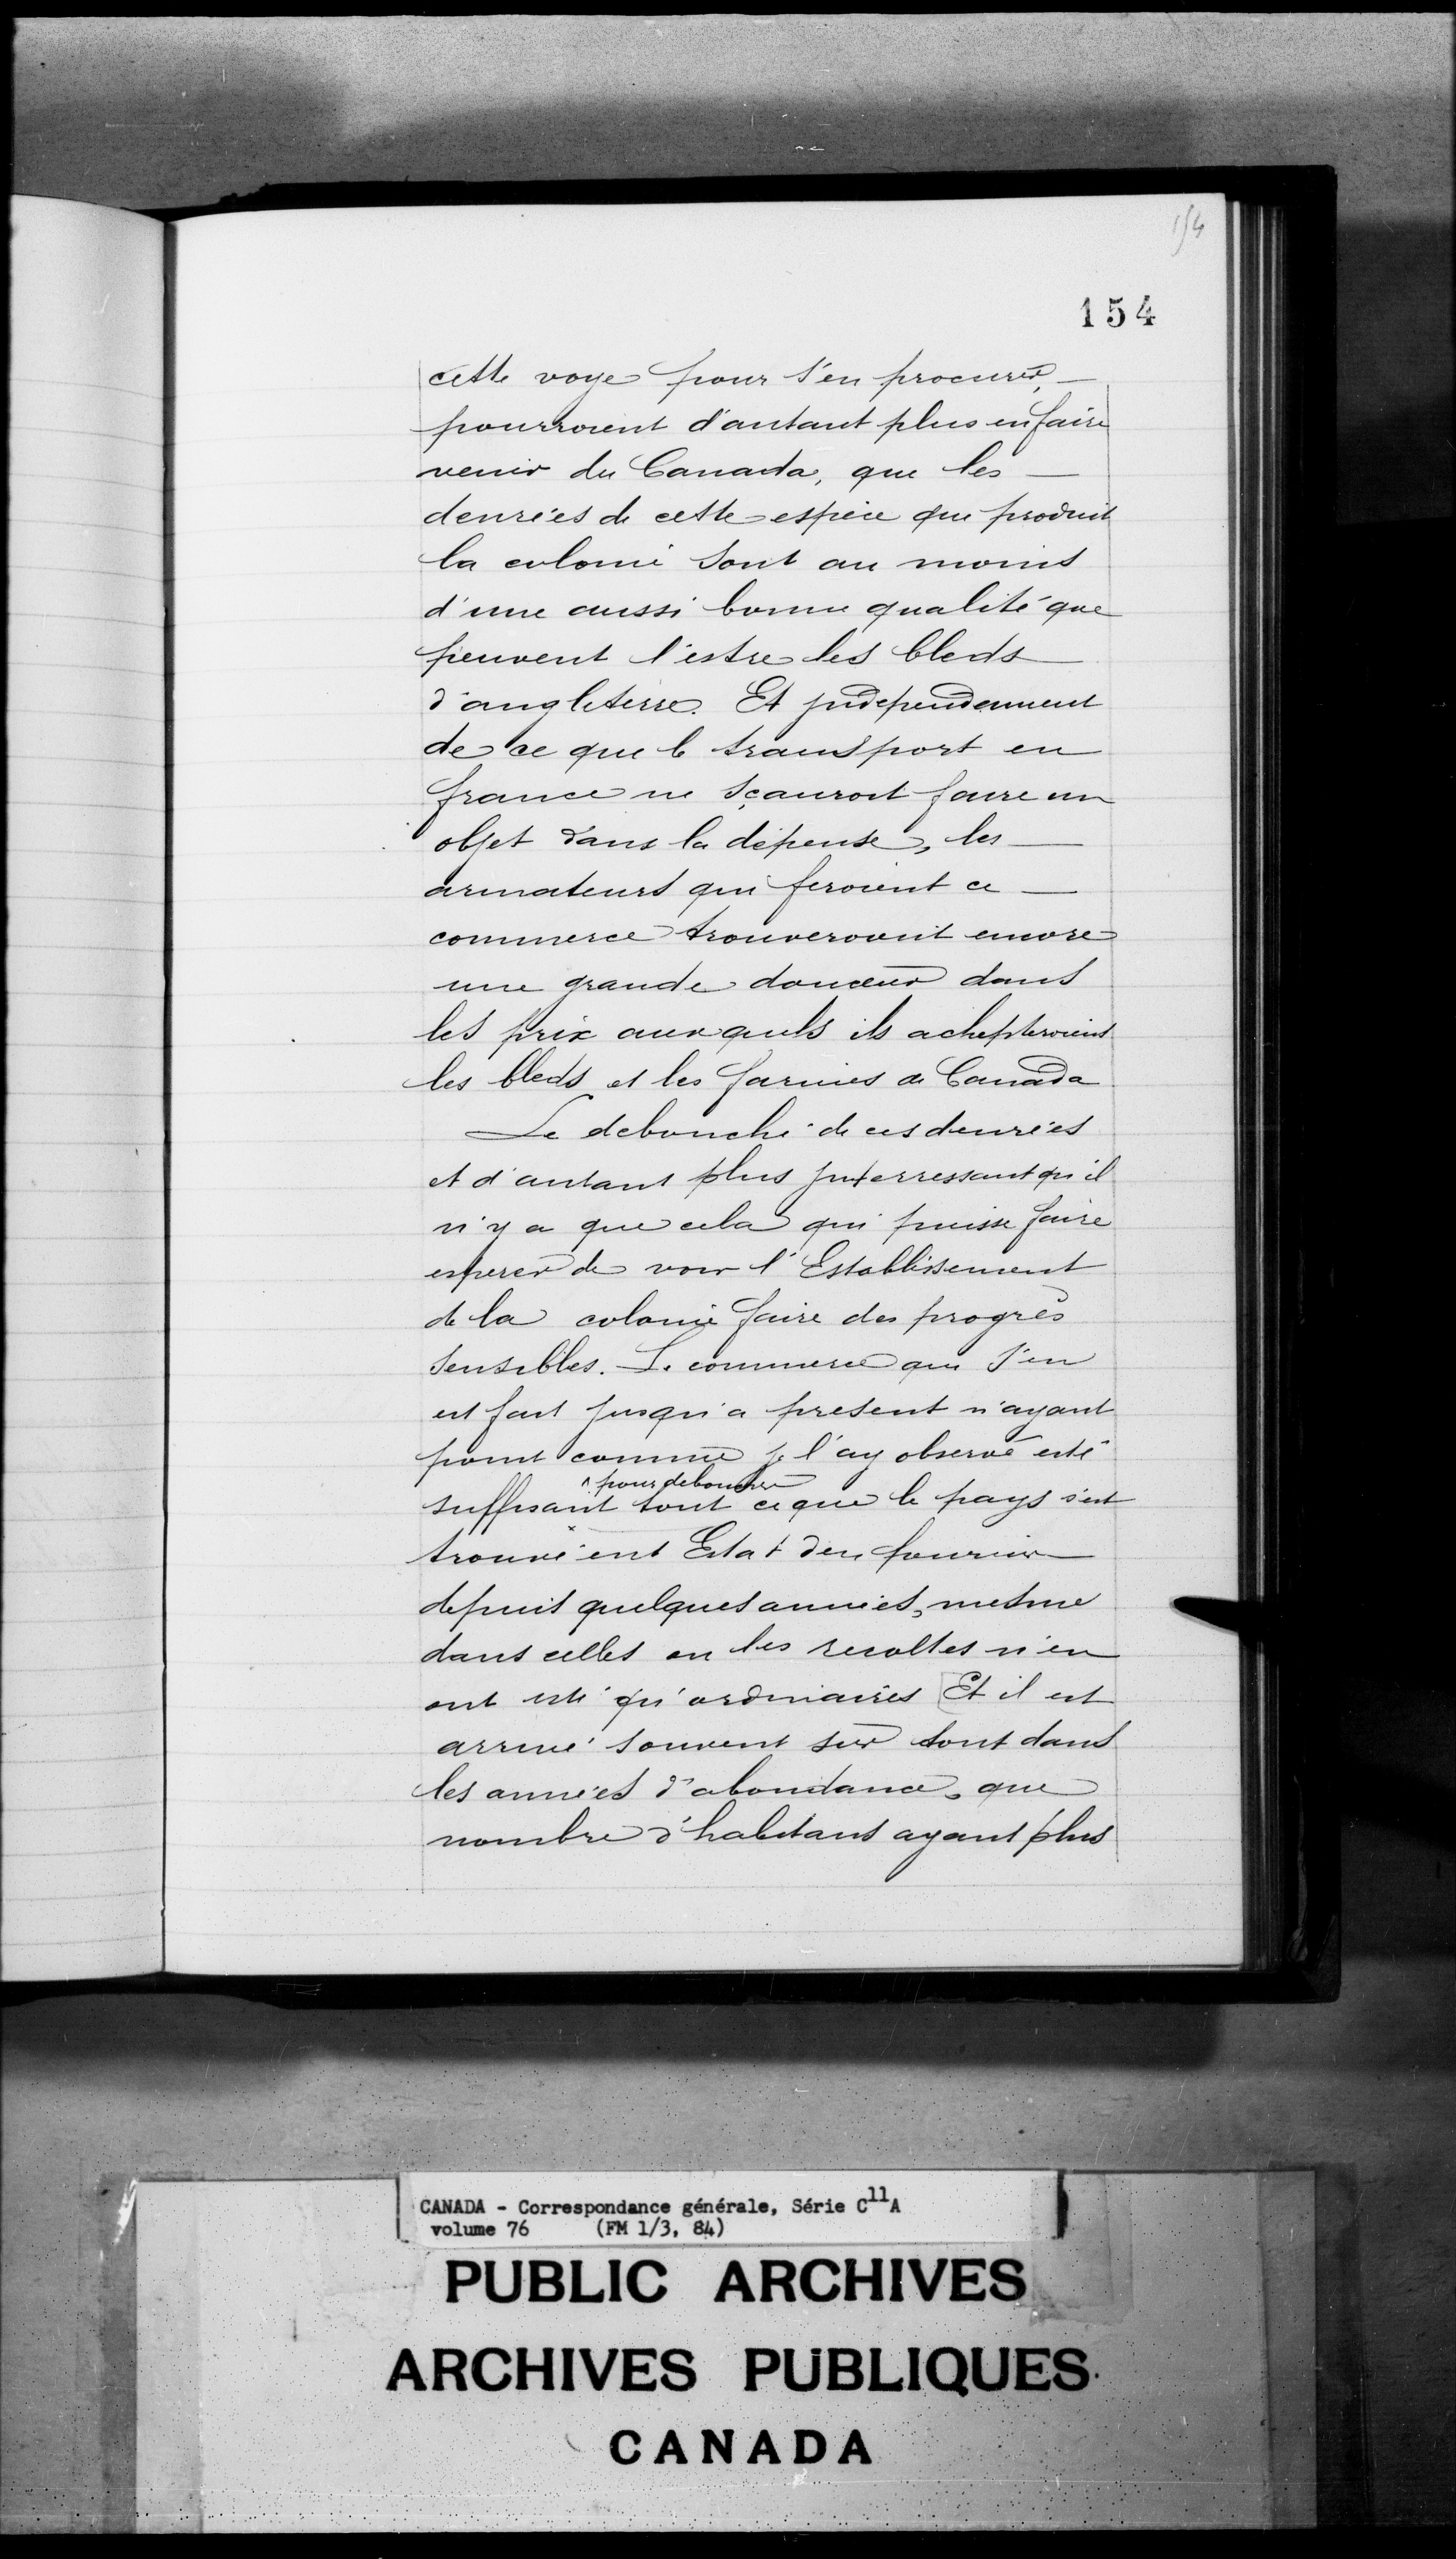 154
154
cette voye pour s'en procurer, —
pourroient d'autant plus en faire
venir du Canada, que les —
denrées de cette espèce que produit
la colonie sont au moins
d'une aussi bonne qualité que
peuvent l'estre les bleds —
d'angleterre. Et jndependemment
de ce que le transport en
france ne sçauroit faire un
objet dans la dépense, les —
armateurs qui feroient ce —
commerce trouveroient encore
une grande douceur dans
les prix auxquels ils achepteroient
les bleds et les farines de Canada
Le debouché de ces denrées
et d'autant plus jnterressant qu'il
n'y a que cela qui puisse faire
esperer de voir l'Establissement
de la colonie faire des progrès
sensibles. Le commerce qui s'en
est fait jusqu'a present n'ayant
point comme je l'ay observé esté
^ pour deboucher
suffisant tout ce que le pays s'est
trouvé ent Estat d'en fournir —
depuis quelques années, mesme
dans celles ou les recoltes n'en
ont esté qu'ordinaires [Et il est
arrivé souvent sur tout dans
les années d'abondance, que
nombre d'habitans ayant plus
CANADA - Correspondance générale, Série C11A
volume 76 (FM 1/3, 84)
PUBLIC ARCHIVES
ARCHIVES PUBLIQUES
CANADA